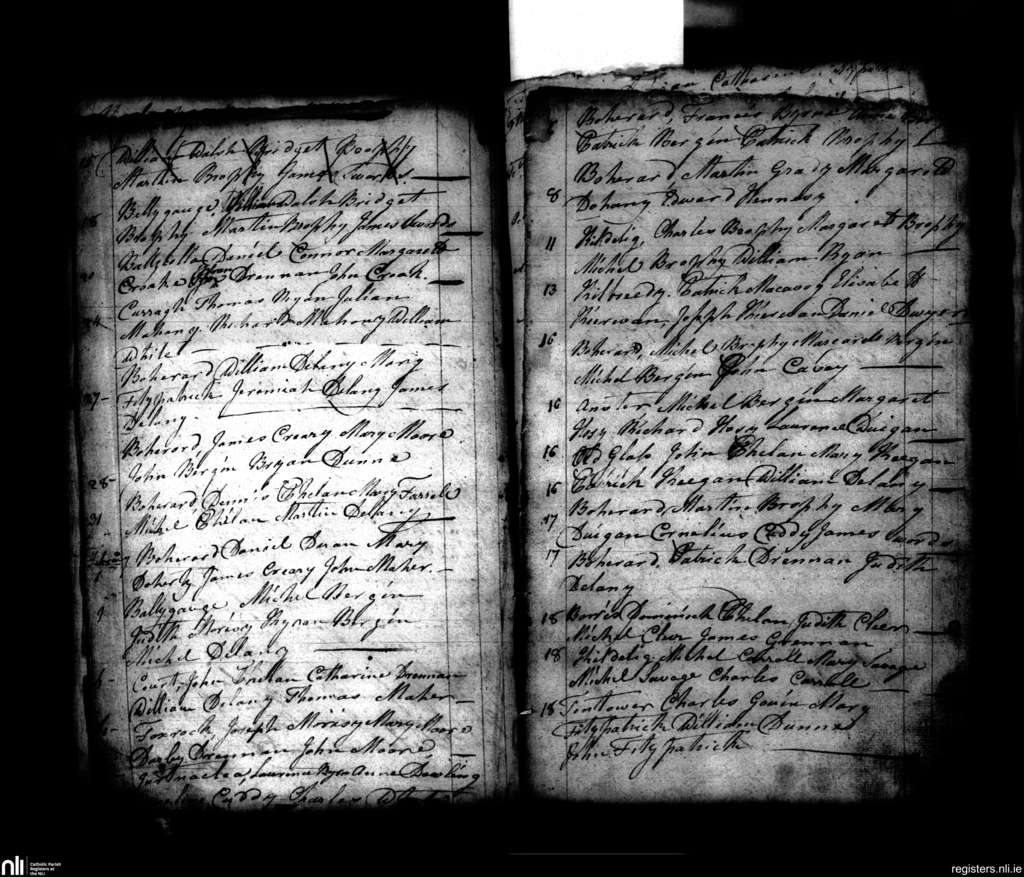 William Walsh Bridget Brophy
Martin Brophy James Swords
18 Ballygauge, William Walsh Bridget
Brophy Martin Brophy James Swords
Ballybolla Daniel Connor Margarett
Croake Drennan John Croak
Curragh Thomas Ryan Julian
24 Mahony Richard Mahony William
White
Boherard William Delany Mary
27 Fitzpatrick Jeremiah Delany James
Delany
Boherard, James Creary Mary Moore
28 John Bergin Bryan Dunne
Boherard Dennis Phelan Mary Farrele
31 Michel Phelan Martin Delany
Boherard Daniel Dwan Mary
Doherty James Creary John Maher
4 Ballygauge Michel Bergin
Judith Morissy Kyran Bergin
Michel Delany
Court, John Catharine Drennan
William Delany Thomas Maher
Tonrock, Joseph Morissy Mary Moore
Darby Drennan John Moore
Laurence Byrn Anne Dowling
Cuddy Charles
Catharine
Boherard, Francis Byrne
Patrick Bergin Patrick Brophy
Boherard Martin Grady Margarett
8 Dohany Edward Hennesy
11 Kildelig, Charles Brophy Margarett Brophy
Michel Brophy William Ryan
13 Kilbreedy, Patrick Macavoy Elizabeth
Kierwan, Joseph Kierwan Daniel Dwyer
16 Boherard, Michel Brophy Margarett Bergin
Michel Bergin John Cavey
16 Anster, Michel Bergin Margaret
Hosy Richard Hosy Laurance Duigan
16 Old Glass John Phelan Mary Keegan
16 Patrick Keegan William Delany
Boherard, Martin Brophy Mary
17 Duigan Cornelius Cuddy James Swords
17 Boherard Patrick Drennan Judith
Delany
18 Borris Dominick Phelan Judith Cleer
Michel Cleer James Grennan
18 Kildelig Michel Carroll Mary Savage
Michel Savage Charles Carroll
18 Tintower Charles Gavin Mary
Fitzpatrick William Dunne
John Fitzpatrick
nli
Catholic Parish
Registers at
the NLI
registers.nli.ie